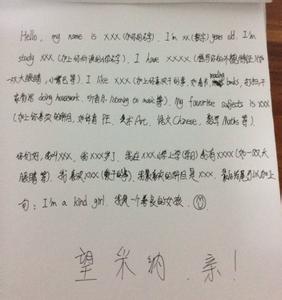 Hello, my name is xxx (加你的名字). I'm xx (数字) years old. I'm
study xxx (加上你所读的小学名字). I have xxxxx
一双大眼睛, 小嘴巴等) I like xxx (加上你喜欢干的事, 如看书 reading books, 打扫卫
doing housework, 听音乐 listening to music等). My favorite subjects is xxx
(加上你喜欢的科目, 如体育 P.E, 美术 Art, 语文 Chinese, 数学 Maths 等).
你们好, 我叫xxx, 我xx岁了, 我在xxx (学上学(学校)) 我有xxxx (如一双大
眼睛等). 我喜欢xxx (做干的事). 我最喜欢的科目是xxx. 最后你可以加上
句: I'm a kind girl. 我是一个善良的女孩.
望采纳, 亲!